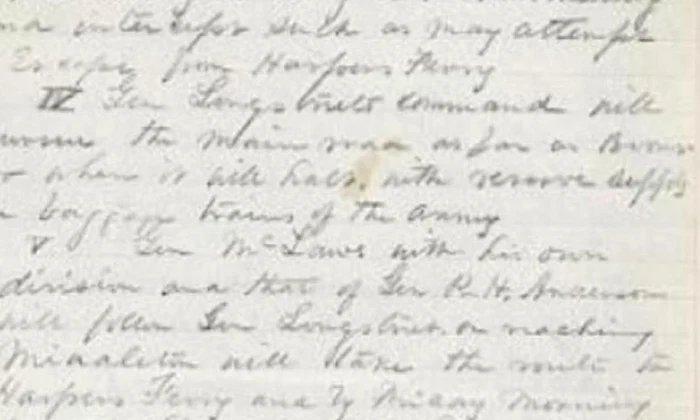 and intercept such as may attempt
Escape from Harpers Ferry
IV Gen Longstreets command will
pursue the main road as far as Boons
boro where it will halt. with reserve supply
and baggage trains of the army
V Gen McLaws with his own
division and that of Gen R. H. Anderson
will follow Gen Longstreet. on reaching
Middleton will take the route to
Harpers Ferry and by Friday morning